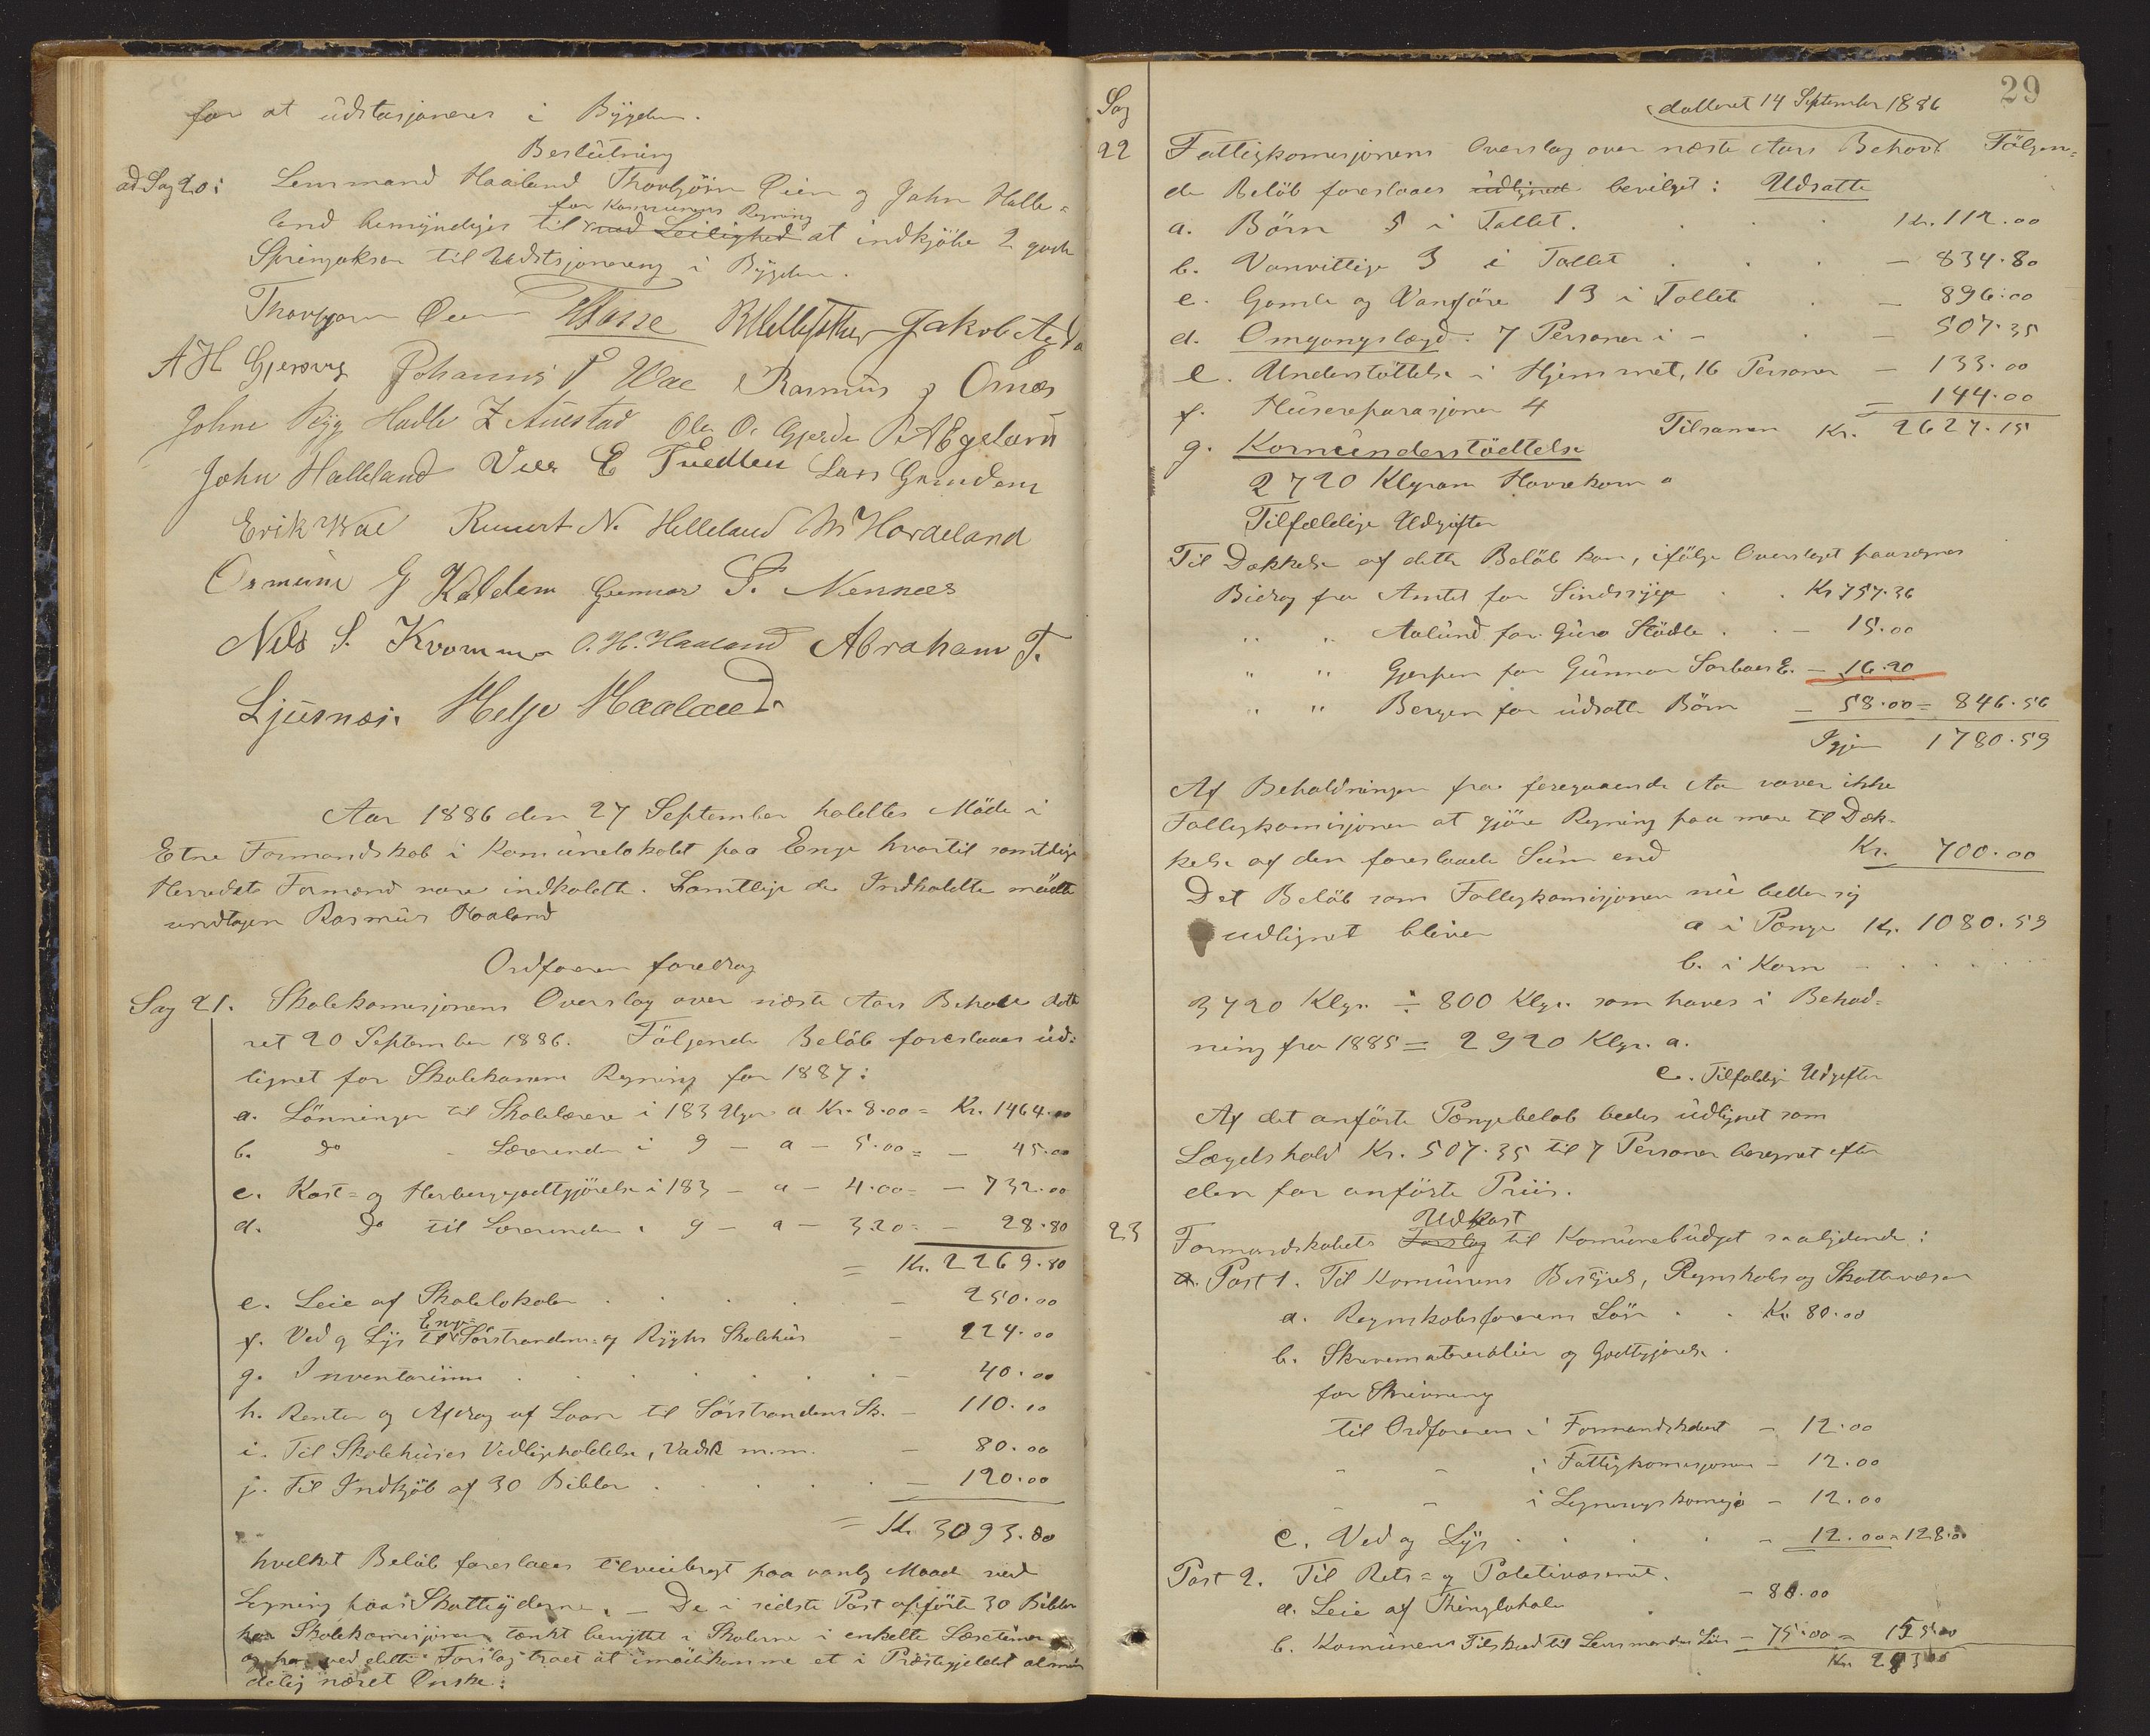 for at udstasjoneres i Bygden.
Beslutning
ad Sag 20: Lensmand Haaland Thorbjörn Øien og John Halle=
for Kommunens Regning
land bemyndiges til med Leilighed at indkjöbe 2 gode
Springoksar til Udstsjonering i Bygden.
Thorbjørn Øien Jakob Agda
A H Gjersvig Johannis P Wae Rasmus J Omøs
Johne Rygg Halle Z Auestad Ole O. Gjerde P A Egeland
John Halleland Lars Grindem
Erik Wae N. Helleland M Hordeland
Osmund G Kaldem Gunnar T. Nernæs
Nels S. Kvamme O. H. Haaland Abraham T.
Ljusnæs. Helje Haaland.
Aar 1886 den 27 September holdtes Möde i
Etne Formandskab i Komunelokalet paa Enge hvortil samtlige
Herredets Formænd vare indkaldte. Samtlige de Indkaldte mödte
undtagen Rasmus Haaland
Ordføreren foredrog
Sag 21. Skolekomisjonens Overslag over næste Aars Behov datte
ret 20 September 1886. Följende Belöb foreslaaes ud:
lignet for Skolekassens Regning for 1887:
a. Lönninger til Skolelærere i 183 Uger a Kr. 8.00 = Kr. 1464.00
b. Do - Lærerinder i 9 - a - 5.00 = - 45.00
c. Kost= og Herbergegodtgjörelse i 183 - a - 4.00 = - 732.00
d. Do til Lærerinden i 9 - a - 3.20 = - 28.80
= Kr. 2269.80
e. Leie af Skolelokaler - 250.00
Enge=
f. Ved og Lys til Sörstrandens= og Ryghs Skolehus - 224.00
g. Inventarium - 40.00
h. Renter og Afdrag af Laan til Sörstrandens Sk. - 110.00
i. Til Skolehuses Vedligeholdelse, Vadsk m.m. - 80.00
j. Til Indkjöb af 30 Bibler - 120.00
= Kr. 3093.80
hvilket Belöb foreslaaes tilveiebragt paa vanlig Maade ved
Ligning paa Skatteyderne. - De i sidste Post anförte 30 Bibler
har Skolekomisjonen tænkt benyttet i Skolerne i enkelte Læsetimer
og har ved dette Forslag troet at imödekomme et i Præstegjeldet almin
delig næret Ønske:
29
Sag
datteret 14 September 1886
22 Fattigkomisjonens Overslag over næste Aars Behov. Fölgen=
de Belöb foreslaaes udlignet bevilget: Udsatte
a. Börn 5 i Tallet. Kr. 112.00
b. Vanvittige 3 i Tallet - 834.80
c. Gamle og Vanföre 13 i Tallet - 896.00
d. Omgangslægd: 7 Personer i - - 507.35
e. Understöttelse i Hjemmet, 16 Personer - 133.00
f. Husereparasjoner 4 = 144.00
Tilsamen Kr. 2627.15
g. Kornunderstöttelse
2720 Klgram Havrekorn a
Tilfældige Udgifter
Til Dækkelse af dette Belöb kan, ifölge Overslaget paaregnes
Bidrag fra Amtet for Sindssyge . Kr 757.36
" " Aalund for Guro Stödle . - 15.00
" " Gjerpen for Gunnar Sarbaes E. - 16.20
" " Bergen for udsatte Börn - 58.00 = 846.56
Igjen 1780.59
Af Beholdningen fra foregaaende Aar vover ikke
Fattigkomisjonen at gjöre Regning paa mere til Dæk-
kelse af den foreslaaede Sum end Kr. 700.00
Det Belöb som Fattigkomisjonen nu beder sig
udlignet bliver a i Penge Kr. 1080.59
b. i Korn
3720 Klgr. ÷ 800 Klgr. som haves i Behod=
ning fra 1885 = 2920 Klgr. a.
c. Tilfældige Udgifter
Af det anförte Pengebeløb bedes udlignet som
Lægdshold Kr. 507.35 til 7 Personer beregnet efter
den for anförte Priis.
Udkast
23 Formandskabets Forslag til Komunebudget saalydende:
a. Post 1. Til Komunens Bestyrels, Regnskabs og Skattevæsen
a. Regnskabsförerens Løn . . Kr. 80.00
b. Skrivematerialier og Godtgjörelse
for Skrivning
til Ordføreren i Formandskabet - 12.00
- - i Fattigkomisjonen - 12.00
- - i Ligningskomisjo - 12.00
c. Ved og Lys - 12.00 = 128.00
Post 2. Til Rets= og Politivæsenet.
a. Leie af Thinglokale - 80.00
b. Komunens Tilskud til Lensmandens Løn - 75.00 = 155.00
Kr. 283.00